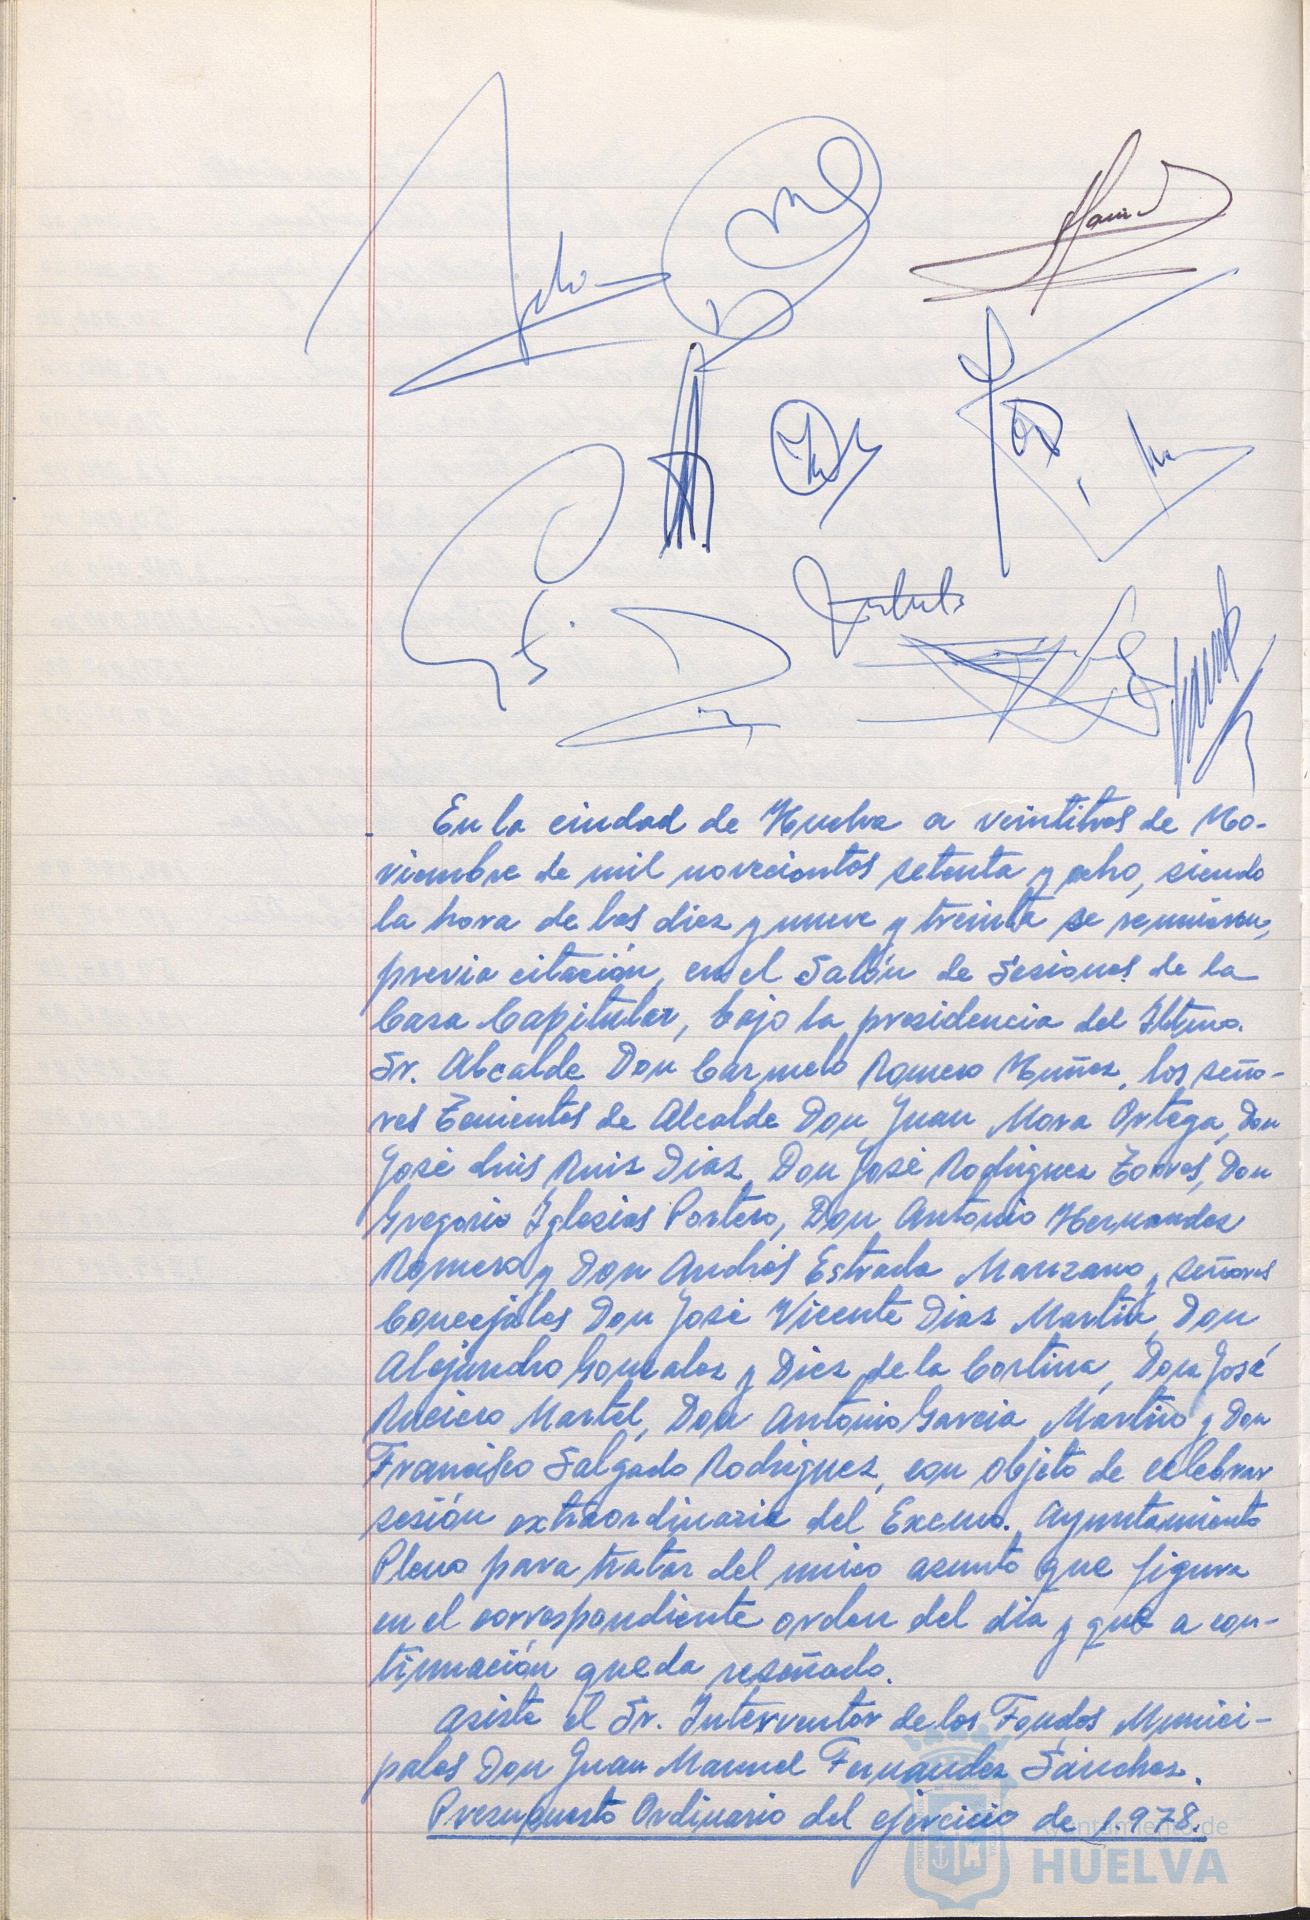 En la ciudad de Huelva a veintitres de No-
viembre de mil novecientos setenta y ocho, siendo
la hora de las diez y nueve y treinta se reunieron,
previa citación, en el Salón de Sesiones de la
Casa Capitular, bajo la presidencia del Iltmo.
Sr. Alcalde Don Carmelo Romero Muñoz, los seño-
res Tenientes de Alcalde Don Juan Mora Ortega, Don
José Luis Ruiz Diaz, Don José Rodriguez Torres, Don
Gregorio Iglesias Portero, Don Antonio Hernandez
Romero y Don Andrés Estrada Manzano y señores
Concejales Don José Vicente Diaz Martín, Don
Alejandro Gonzalez y Diez de la Cortina, Don José
Martel, Don Antonio Garcia y Don
Francisco Salgado Rodriguez, con objeto de celebrar
sesión extraordinaria del Excmo. Ayuntamiento
Pleno para tratar del unico asunto que figura
en el correspondiente orden del dia y que a con-
tinuación queda reseñado.
Asiste el Sr. Interventor de los Fondos Munici-
pales Don Juan Manuel Fernandez Sánchez.
Presupuesto Ordinario del ejercicio de 1.978.
Ayuntamiento de
HUELVA